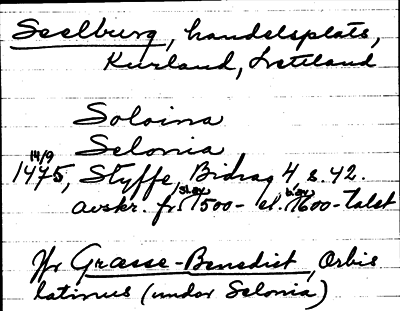 Seelburg, handelsplats,
Kurland, Lettland
Soloina
Selonia
14/9
1475, Styffe, Bidrag 4 s. 42.
slutet början
avskr. fr. 1500- el. 1600-talet
Jfr Graesse-Benedict, Orbis
latinus (under Selonia)